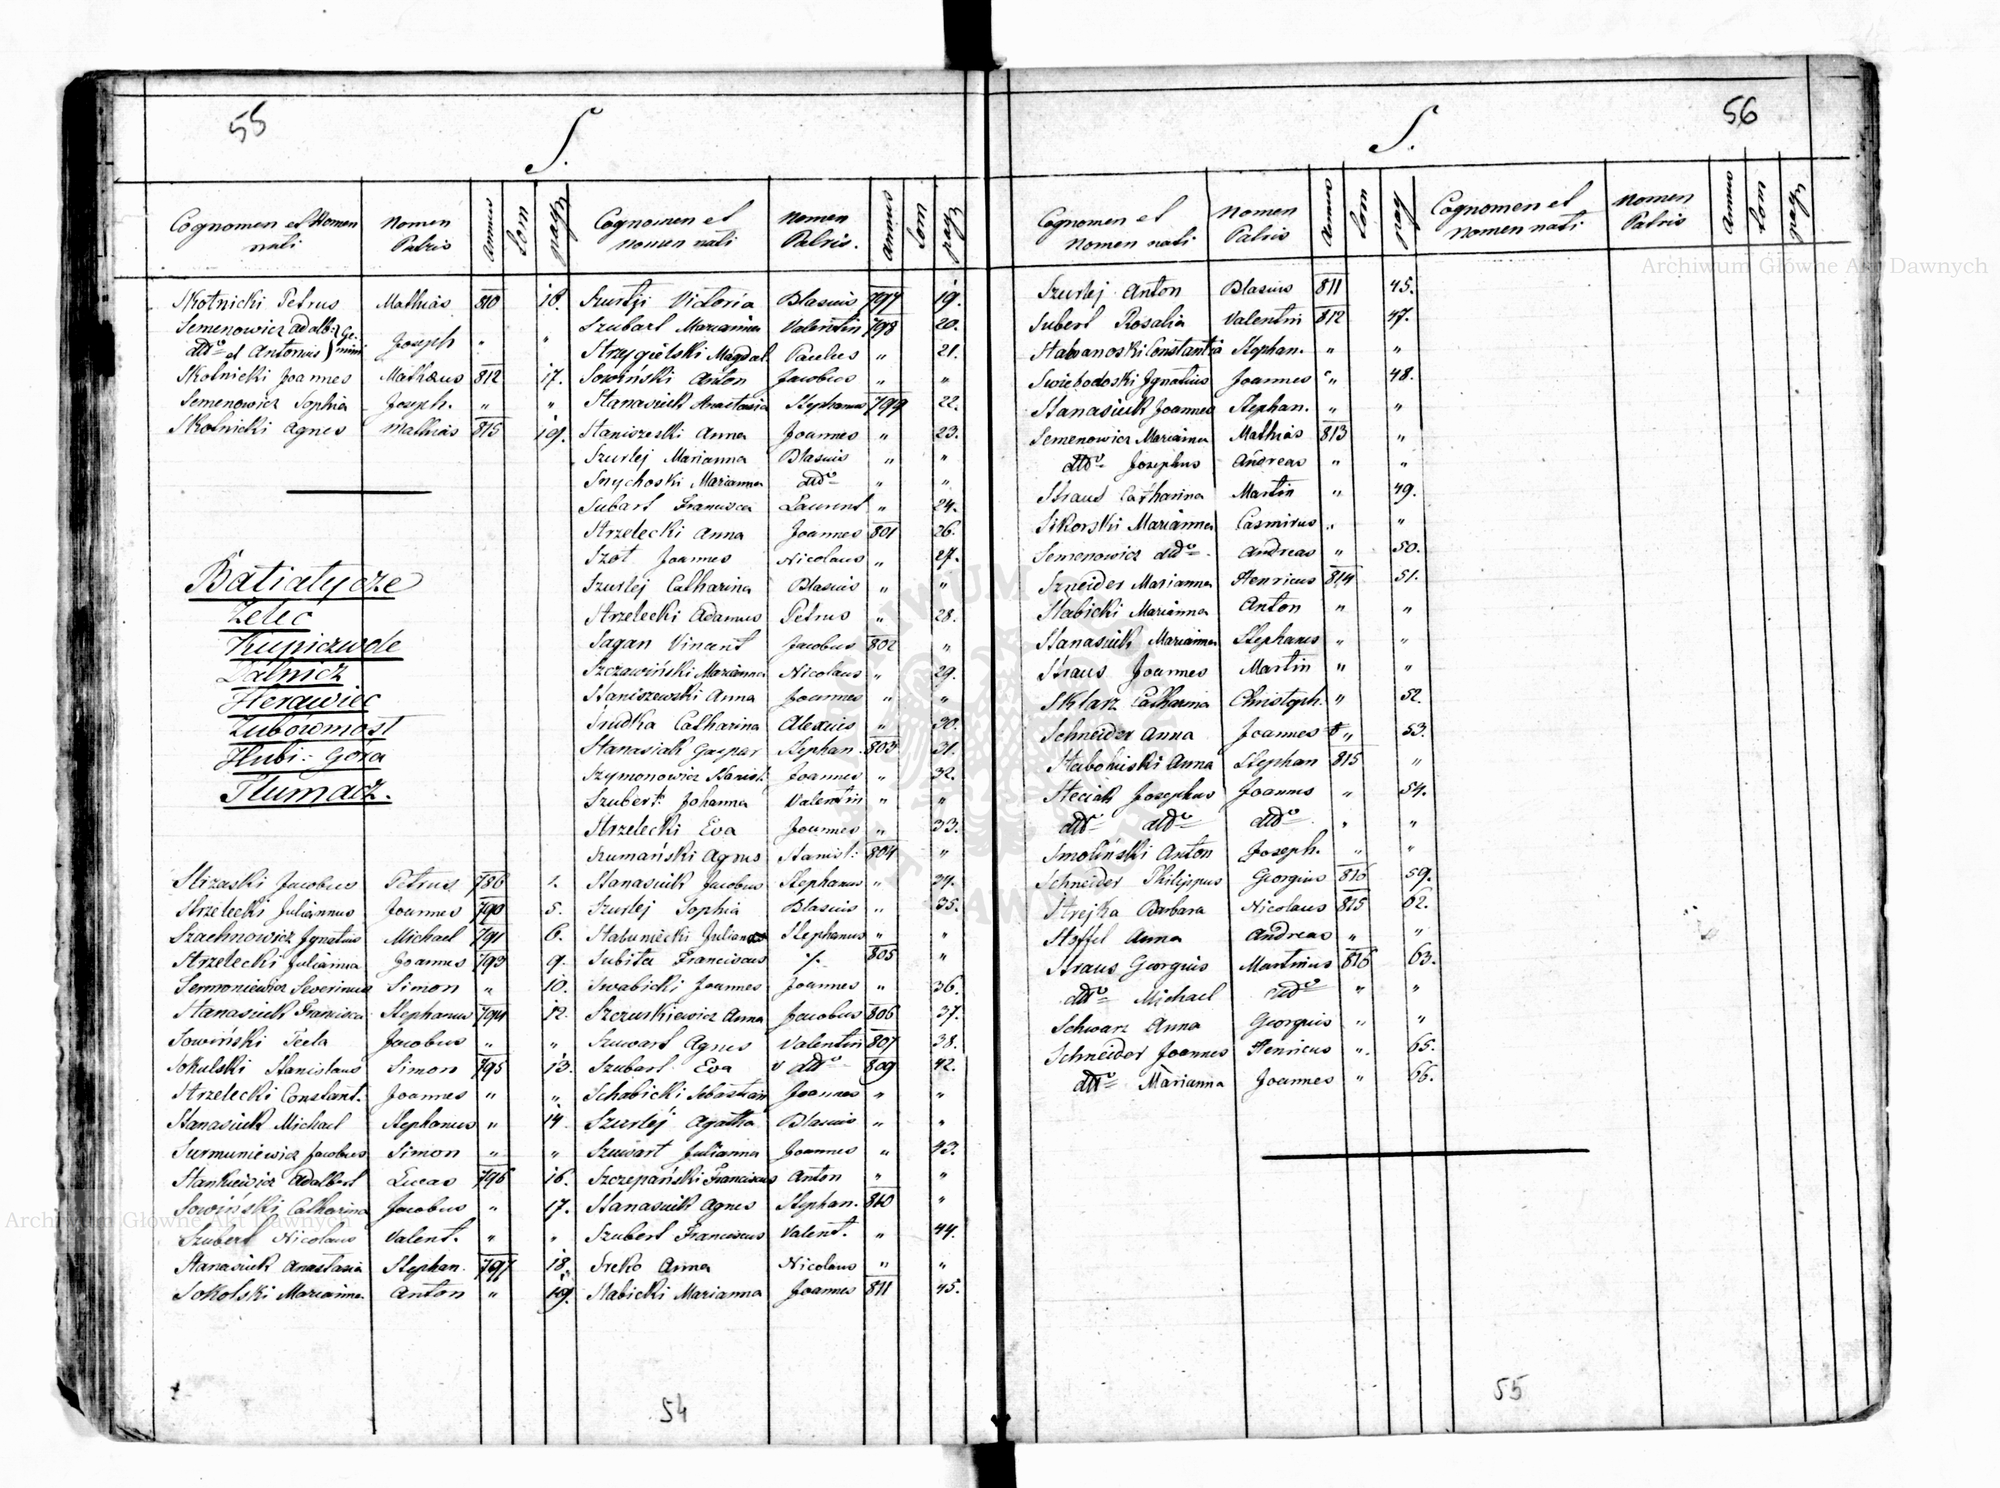 55
S.
Cognomen et Nomen nati
Nomen Patris
Annus
Tom
pag
Skotnicki Petrus Mathias 810 18.
Semenowicz Adalb: Ge-
ditto et Antonius) mini Joseph " "
Skotnicki Joannes Mathæus 812 17.
Semenowicz Sophia Joseph. " "
Skotnicki Agnes Mathias 815 19.
Batiatycze
Zelec
Kupiczwole
Dalnicz
Herawiec
Zubowmost
Hubi: Gora
Tlumacz.
Strzaski Jacobus Petrus 786 1.
Strzelecki Juliannus Joannes 790 5.
Szachnowicz Ignatius Michael 791 6.
Strzelecki Julianna Joannes 793 9.
Sermoniewicz Severinus Simon " 10.
Stanasiuk Francisca Stephanus 794 12.
Sowiński Tecla Jacobus " "
Sokulski Stanislaus Simon 795 13.
Strzelecki Constant. Joannes " "
Stanasiuk Michael Stephanus " 14
Surmuniewicz Jacobus Simon " "
Stankiewicz Adalbert Lucas 796 16.
Sowiński Catharina Jacobus " 17.
Szubert Nicolaus Valent. " "
Stanasiuk Anastasia Stephan. 797 18.
Sokolski Marianna Anton " 19.
Cognomen et Nomen nati
Nomen Patris.
Annus
Tom
pag
Szurlej Victoria Blasius 797 19.
Szubart Marianna Valentin 798 20.
Strzygielski Magdal. Paulus " 21.
Sowiński Anton Jacobus " "
Stanasiuk Anastasia Stephanus 799 22.
Staniszeski Anna Joannes " 23.
Szurlej Marianna Blasius " "
Snychoski Marianna ditto " "
Subart Francisca Laurent " 24.
Strzelecki Anna Joannes 801 26.
Szot Joannes Nicolaus " 27.
Szurlej Catharina Blasius " "
Strzelecki Adamus Petrus " 28.
Sagan Vincent Jacobus 802 "
Szczawiński Marianna Nicolaus " 29.
Staniszewski Anna Joannes " "
Srudka Catharina Alexius " 30.
Stanasiak Gaspar Stephan. 803 31.
Szymonowicz Stanisl: Joannes " 32.
Szubert: Johanna Valentin " "
Strzelecki Eva Joannes " 33.
Szumański Agnes Stanisl: 804 "
Stanasiuk Jacobus Stephanus " 34.
Szurlej Sophia Blasius " 35.
Stabuniecki Julian Stephanus " "
Subita Franciscus ./. 805 "
Swabicki Joannes Joannes " 36.
Szczuskiewicz Anna Jacobus 806 37.
Szuwart Agnes Valentin 807 38.
Szubart Eva v ditto 809 42.
Schabicki Sebastian Joannes " "
Szurlej Agatha Blasius " "
Szuwart Julianna Joannes " 43.
Szczepański Franciscus Anton " "
Stanasiuk Agnes Stephan. 810 "
Szubert Franciscus Valent. " 44.
Sreko Anna Nicolaus " "
Stabicki Marianna Joannes 811 45.
54
S.
56
Cognomen et Nomen nati
Nomen Patris
Annus
Tom
pag
Szurlej Anton Blasius 811 45.
Subert Rosalia Valentin 812 47.
Stabanoski Constantia Stephan. " "
Swiebodoski Ignatius Joannes " 48.
Stanasiuk Joannes Stephan. " "
Semenowicz Marianna Mathias 813 "
ditto Josephus Andreas " "
Straus Catharina Martin " 49.
Sikorski Marianna Casmirus " "
Semenowicz ditto Andreas " 50.
Szneider Marianna Henricus 814 51.
Stabicki Marianna Anton " "
Stanasiuk Marianna Stephanus " "
Straus Joannes Martin " "
Sklarz Catharina Christoph. " 52.
Schneider Anna Joannes " 53.
Stabohuski Anna Stephan 815 "
Steciak Josephus Joannes " 54.
ditto ditto ditto " "
Smoliński Anton Joseph. " "
Schneider Philippus Georgius 816 59.
Strejka Barbara Nicolaus 815 62.
Stoffel Anna Andreas " "
Straus Georgius Martinus 816 63.
ditto Michael ditto " "
Schwarz Anna Georgius " "
Schneider Joannes Henricus " 65.
ditto Marianna Joannes " 66.
Cognomen et Nomen nati
Nomen Patris
Annus
Tom
pag
55
Archiwum Główne Akt Dawnych
Archiwum Główne Akt Dawnych